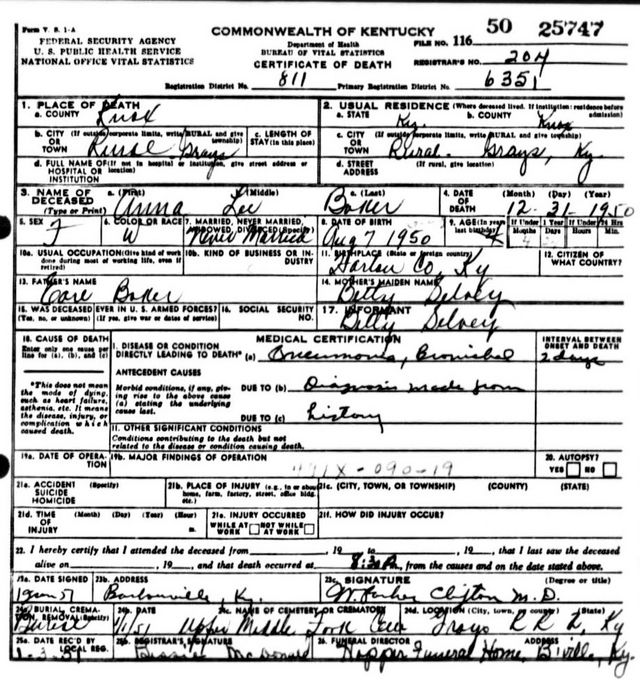 Form V. S. 1-A
FEDERAL SECURITY AGENCY
U. S. PUBLIC HEALTH SERVICE
NATIONAL OFFICE VITAL STATISTICS
COMMONWEALTH OF KENTUCKY
Department of Health
BUREAU OF VITAL STATISTICS
CERTIFICATE OF DEATH
FILE NO. 116 50 25747
REGISTRAR'S NO. 204
Registration District No. 811 Primary Registration District No. 6351
1. PLACE OF DEATH
a. COUNTY Knox
b. CITY (If outside corporate limits, write RURAL and give township)
OR TOWN Rural Grays
c. LENGTH OF STAY (in this place)
d. FULL NAME OF (If not in hospital or institution, give street address or location)
HOSPITAL OR INSTITUTION
2. USUAL RESIDENCE (Where deceased lived. If institution: residence before admission)
a. STATE Ky. b. COUNTY Knox
c. CITY (If outside corporate limits, write RURAL and give township)
OR TOWN Rural. Grays, Ky.
d. STREET ADDRESS (If rural, give location)
3. NAME OF DECEASED (Type or Print)
a. (First) Anna b. (Middle) Lee c. (Last) Baker
4. DATE OF DEATH (Month) (Day) (Year) 12-31-1950
5. SEX F
6. COLOR OR RACE W
7. MARRIED, NEVER MARRIED, WIDOWED, DIVORCED (Specify) Never Married
8. DATE OF BIRTH Aug 7 1950
9. AGE (In years last birthday) If Under 1 Year Months 4 Days If Under 24 Hrs Hours Min.
10a. USUAL OCCUPATION (Give kind of work done during most of working life, even if retired)
10b. KIND OF BUSINESS OR INDUSTRY
11. BIRTHPLACE (State or foreign country) Harlan Co, Ky
12. CITIZEN OF WHAT COUNTRY?
13. FATHER'S NAME
Baker
14. MOTHER'S MAIDEN NAME
Betty Selvey
15. WAS DECEASED EVER IN U. S. ARMED FORCES?
(Yes, no, or unknown) (If yes, give war or dates of service)
16. SOCIAL SECURITY NO.
17. INFORMANT
Betty Selvey
18. CAUSE OF DEATH
Enter only one cause per line for (a), (b), and (c)
*This does not mean the mode of dying, such as heart failure, asthenia, etc. It means the disease, injury, or complication which caused death.
MEDICAL CERTIFICATION
I. DISEASE OR CONDITION DIRECTLY LEADING TO DEATH* (a) Pneumonia, Bronchial
INTERVAL BETWEEN ONSET AND DEATH
2 days
ANTECEDENT CAUSES
Morbid conditions, if any, giving rise to the above cause (a) stating the underlying cause last.
DUE TO (b) Diagnosis made from
DUE TO (c) history
II. OTHER SIGNIFICANT CONDITIONS
Conditions contributing to the death but not related to the disease or condition causing death.
19a. DATE OF OPERATION
19b. MAJOR FINDINGS OF OPERATION
491X-090-19
20. AUTOPSY?
YES NO
21a. ACCIDENT SUICIDE HOMICIDE (Specify)
21b. PLACE OF INJURY (e.g., in or about home, farm, factory, street, office bldg. etc.)
21c. (CITY, TOWN, OR TOWNSHIP) (COUNTY) (STATE)
21d. TIME OF INJURY (Month) (Day) (Year) (Hour) m.
21e. INJURY OCCURRED
WHILE AT WORK NOT WHILE AT WORK
21f. HOW DID INJURY OCCUR?
22. I hereby certify that I attended the deceased from , 19 to , 19 , that I last saw the deceased
alive on , 19 , and that death occurred at 8:30 m., from the causes and on the date stated above.
23a. DATE SIGNED
23b. ADDRESS
Barbourville, Ky.
23c. SIGNATURE (Degree or title)
Clifton M.D.
24a. BURIAL, CREMATION, REMOVAL (Specify)
Burial
24b. DATE
1/1/51
24c. NAME OF CEMETERY OR CREMATORY
Upper Middle Fork Cem
24d. LOCATION (City, town, or county) (State)
Grays RR 2, Ky
25a. REC'D BY LOCAL REG.
1-3-51
25b. REGISTRAR'S SIGNATURE
26. FUNERAL DIRECTOR ADDRESS
Hopper Funeral Home, B'ville, Ky.